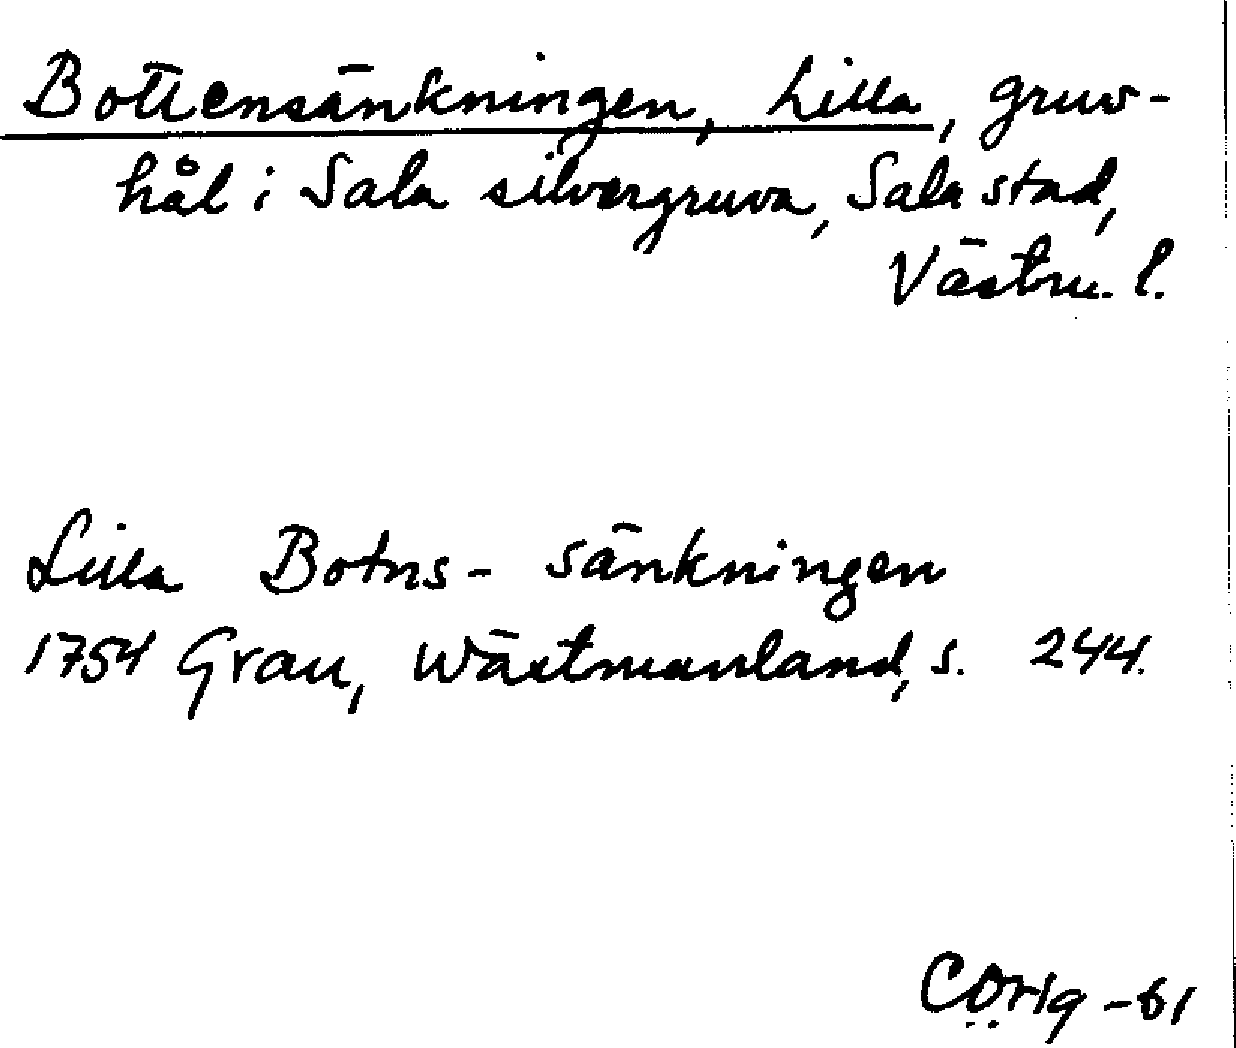 Bottensänkningen, Lilla, gruv-
hål i Sala silvergruva, Sala stad,
Västm. l.
Lilla Botns- sänkningen
1754 Grau, Wästmanland, s. 244.
COrig -61